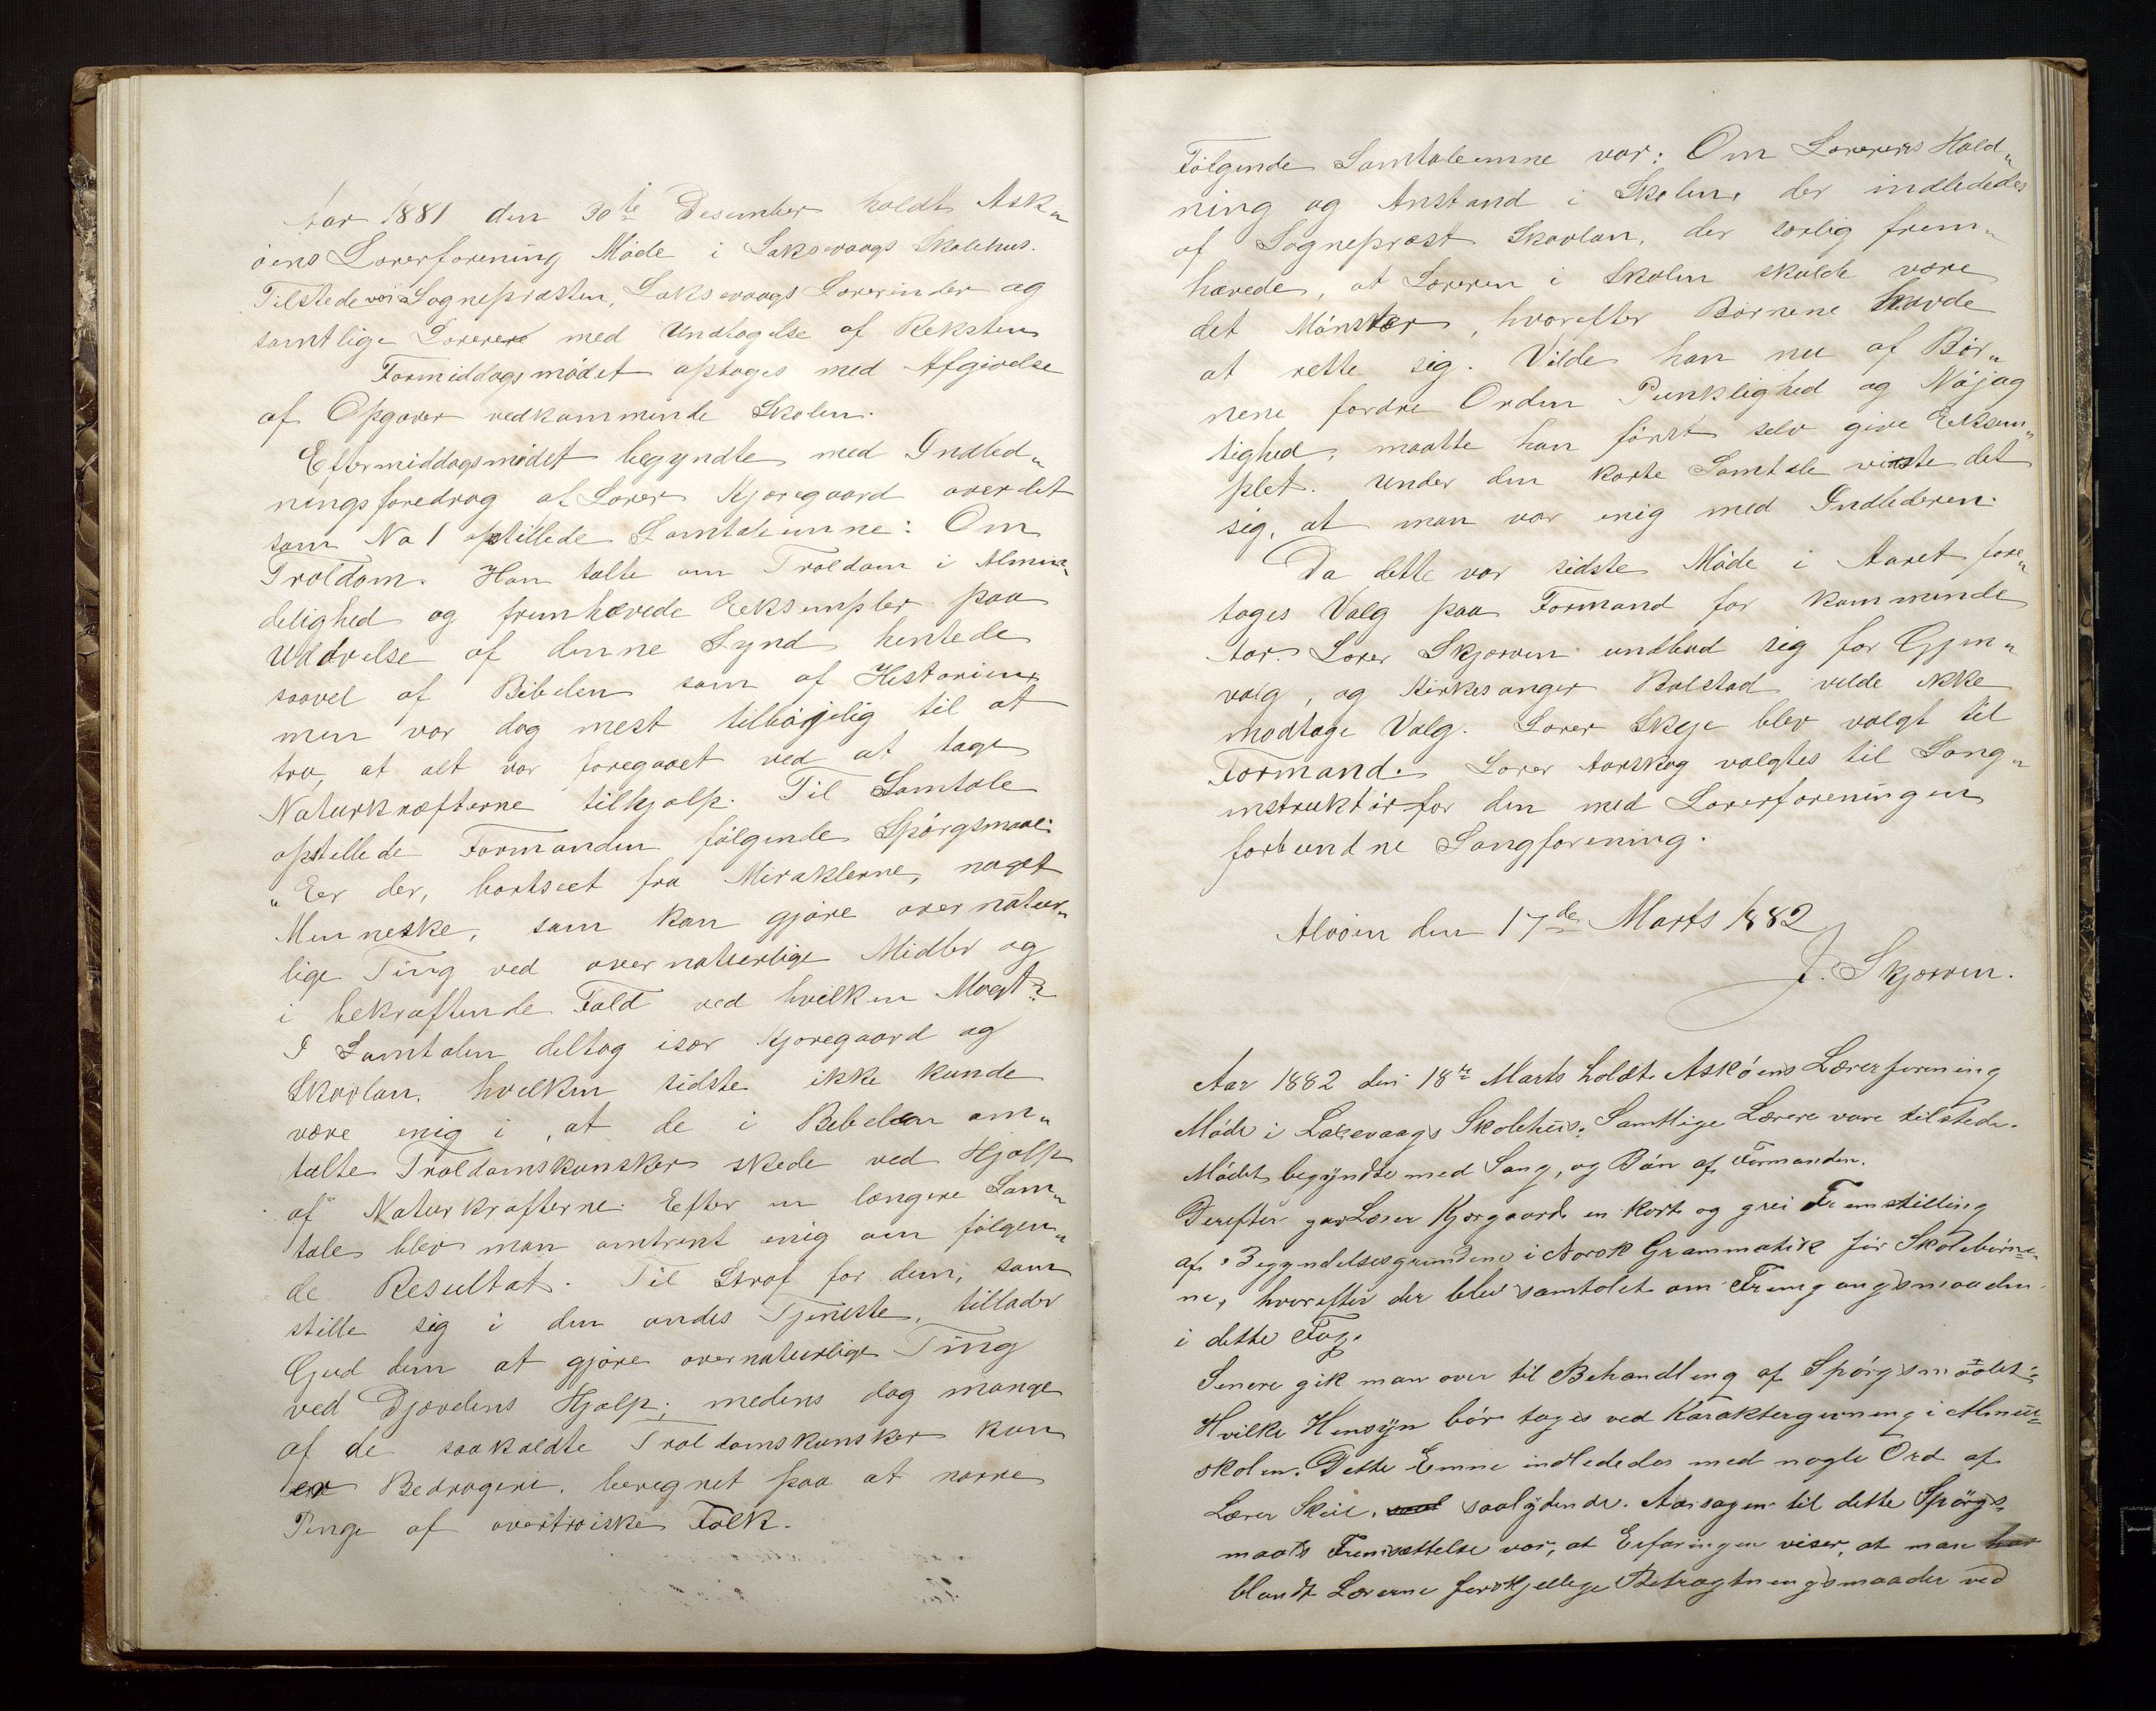 Aar 1881 den 30te Desember holdt Ask„
øens Lærerforening Møde i Laksevaags Skolehus.
Tilstede var Sognepræsten, Laksevaags Lærerinder og
samtlige Lærere med Undtagelse af Reksten
Formiddagsmødet optoges med Afgivelse
af Opgaver vedkommende Skolen.
Eftermiddagsmødet begyndte med Indled„
ningsforedrag af Lærer Kjæregaard over det
som No 1 opstillede Samtaleemne: Om
Troldom. Han talte om Troldom i Almin„
delighed og fremhævede Eeksempler paa
Udøvelse af denne Synd hentede
saavel af Bibelen som af Historien,
men var dog mest tilbøjelig til at
tro, at alt var foregaaet ved at tage
Naturkræfterne tilhjælp. Til Samtale
opstillede Formanden følgende Spørgsmaal:
„Eer der, bortseet fra Miraklerne, noget
Menneske, som kan gjøre overnatur„
lige Ting ved overnaturlige Midler og
i bekræftende Fald ved hvilken Magt?
I Samtalen deltog især Kjæregaard og
Skavlan, hvilken sidste ikke kunde
være enig i, at de i Bibelen om„
talte Troldomskunster skede ved Hjælp
af Naturkræfterne. Eefter en længere Sam„
tale blev man omtrent enig om følgen„
de Resultat. Til Straf for dem, som
stille sig i den ondes Tjeneste, tillader
Gud dem at gjøre overnaturlige Ting
ved Djævelens Hjælp; medens dog mange
af de saakaldte Troldomskunster kun
er Bedrageri, beregnet paa at narre
Penge af overtroiske Folk.
Følgende Samtaleemne var: Om Lærerens Hold„
ning og Anstand i Skolen, der indlededes
af Sognepræst Skavlan, der særlig frem„
hævede, at Læreren i Skolen skulde være
det Mønster, hvorefter Børnene havde
at rette sig. Vilde han nu af Bør„
nene fordre Orden Punklighed og Nøjag
tighed, maatte han først selv give Eeksem„
plet. Under den korte Samtale viste det
sig, at man var enig med Indlederen.
Da dette var sidste Møde i Aaret fore„
toges Valg paa Formand for kommende
Aar. Lærer Skjærven undbad sig for Gjen„
valg, og Kirkesanger Rolstad vilde ikke
modtage Valg. Lærer Skeje blev valgt til
Formand. Lærer Aarskog valgtes til Sang„
instruktør for den med Lærerforeningen
forbundne Sangforening.
Alvøen den 17de Marts 1882
J. Skjærven.
Aar 1882 den 18de Marts holdt Askøens Lærerforening
Møde i Laksevaags Skolehus. Samtlige Lærere vare tilstede.
Mødet begyndte med Sang, og Bøn af Formanden.
Derefter gav Lærer Kjærgaard en kort og grei Fremstilling
af Begyndelsesgrundene i Norsk Grammatik for Skolebørne=
ne, hvorefter der blev samtalet om Fremgangsmaaden
i dette Fag.
Senere gik man over til Behandling af Spørgsmaalet:
Hvilke Hensyn bør tages ved Karaktergivning i Almue=
skolen. Dette Emne indlededes med nogle Ord af
Lærer Skeie, saalydende. Aarsagen til dette Spørgs=
maals Fremsættelse var, at Erfaringen viser, at man har
blandt Lærerne forskjellige Betragtningsmaader ved